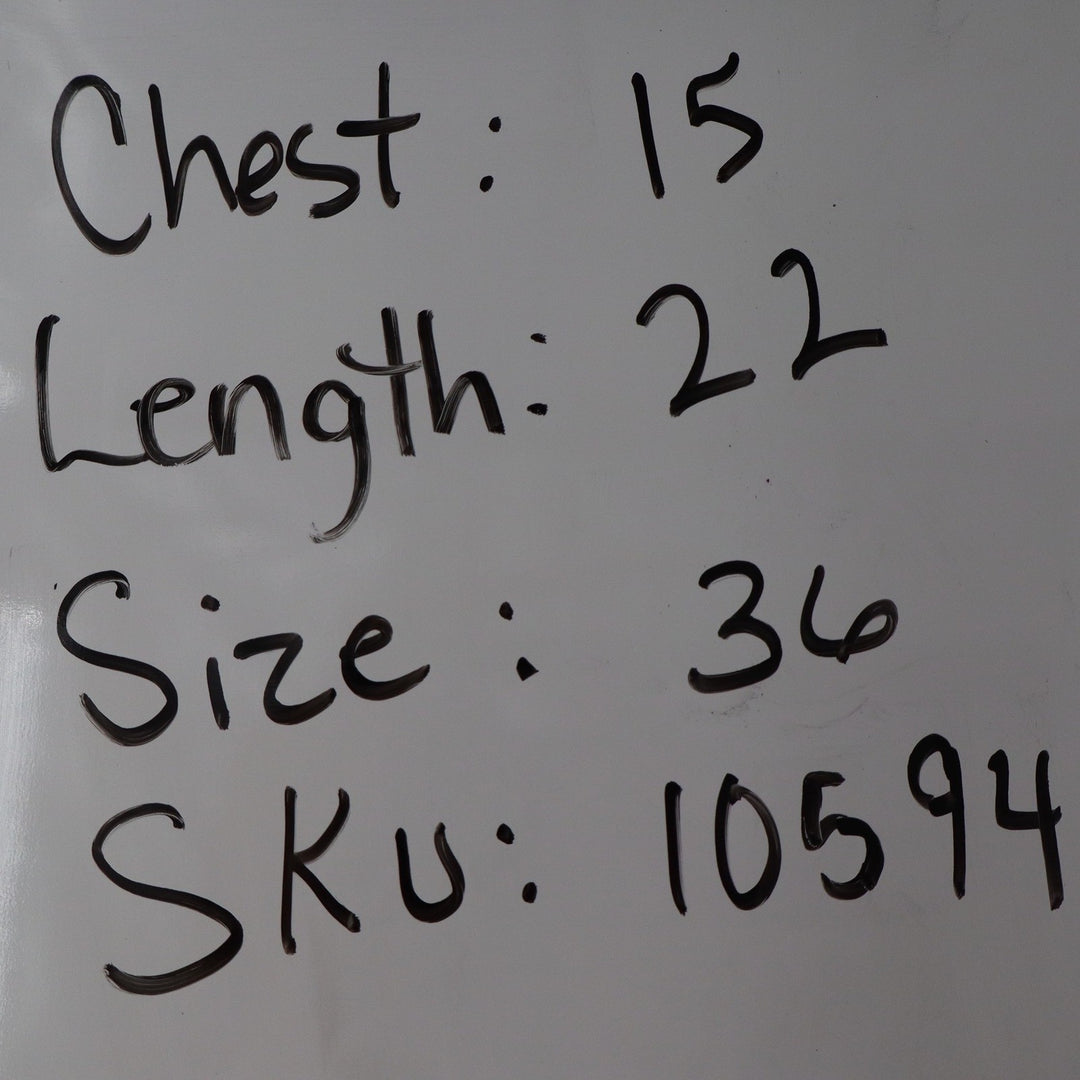 Chest: 15
Length: 22
Size: 36
SKU: 10594